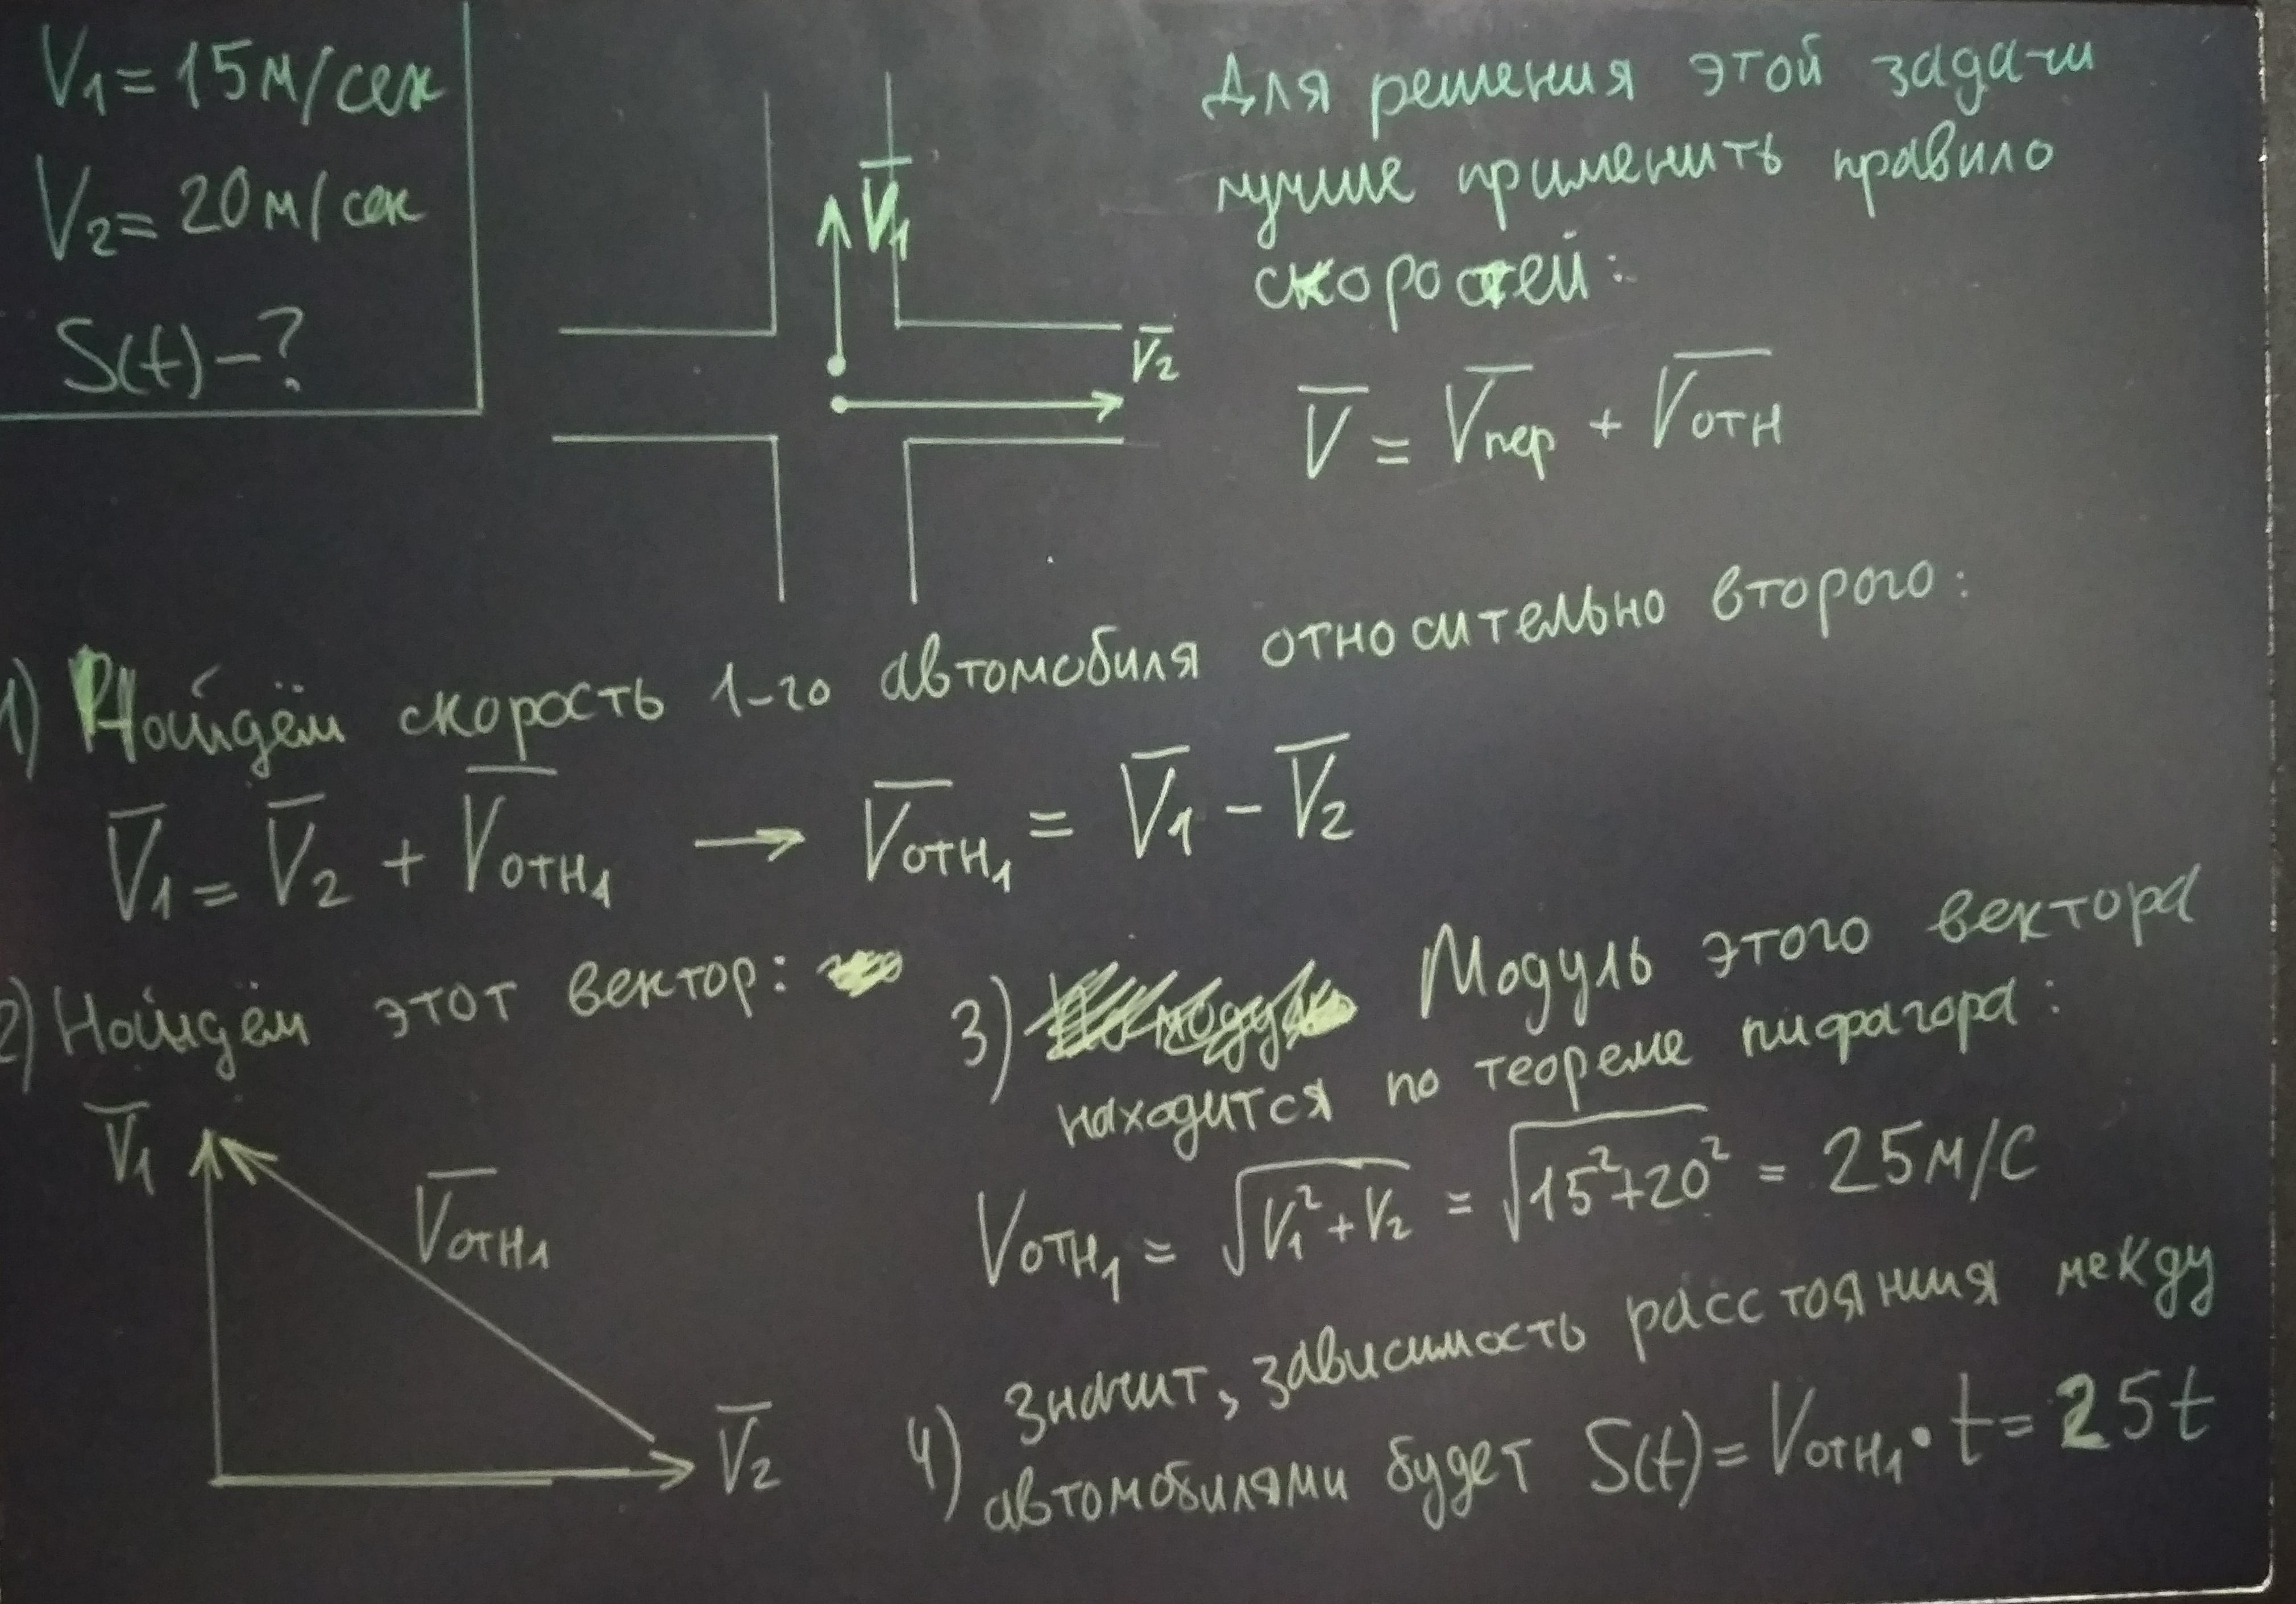 V₁ = 15 м/сек
V₂ = 20 м/сек
S(t) - ?
V̅₁
V̅₂
Для решения этой задачи
лучше применить правило
скоростей:
V̅ = V̅пер + V̅отн
1) Найдём скорость 1-го автомобиля относительно второго:
V̅₁ = V̅₂ + V̅отн₁ → V̅отн₁ = V̅₁ - V̅₂
2) Найдём этот вектор:
V̅₁
V̅отн₁
V̅₂
3) Модуль этого вектора
находится по теореме пифагора:
Vотн₁ = √(V₁² + V₂) = √(15² + 20²) = 25 м/с
4) Значит, зависимость расстояния между
автомобилями будет S(t) = Vотн₁ • t = 25t